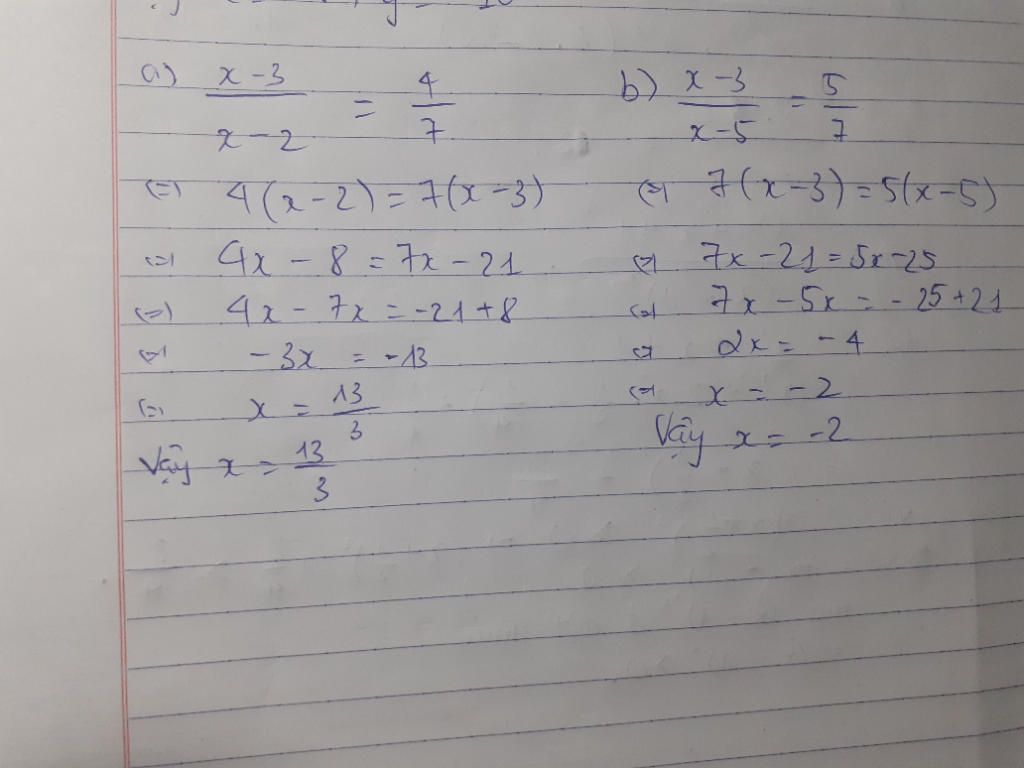 a) x-3 / x-2 = 4/7
⇔ 4(x-2) = 7(x-3)
⇔ 4x - 8 = 7x - 21
⇔ 4x - 7x = -21 + 8
⇔ -3x = -13
⇔ x = 13/3
Vậy x = 13/3
b) x-3 / x-5 = 5/7
⇔ 7(x-3) = 5(x-5)
⇔ 7x - 21 = 5x - 25
⇔ 7x - 5x = -25 + 21
⇔ 2x = -4
⇔ x = -2
Vậy x = -2